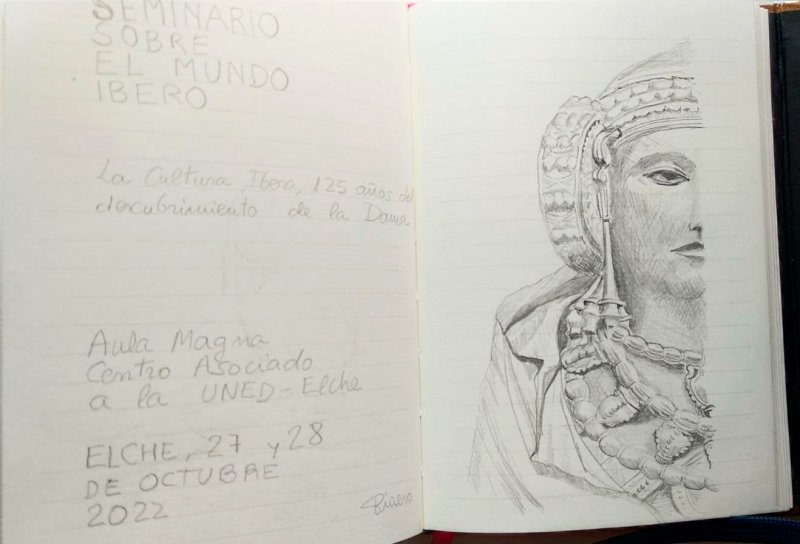 SEMINARIO
SOBRE
EL MUNDO
IBERO
La Cultura Ibera, 125 años del
descubrimiento de la Dama
Aula Magna
Centro Asociado
a la UNED-Elche
ELCHE, 27 y 28
DE OCTUBRE
2022
Piñero